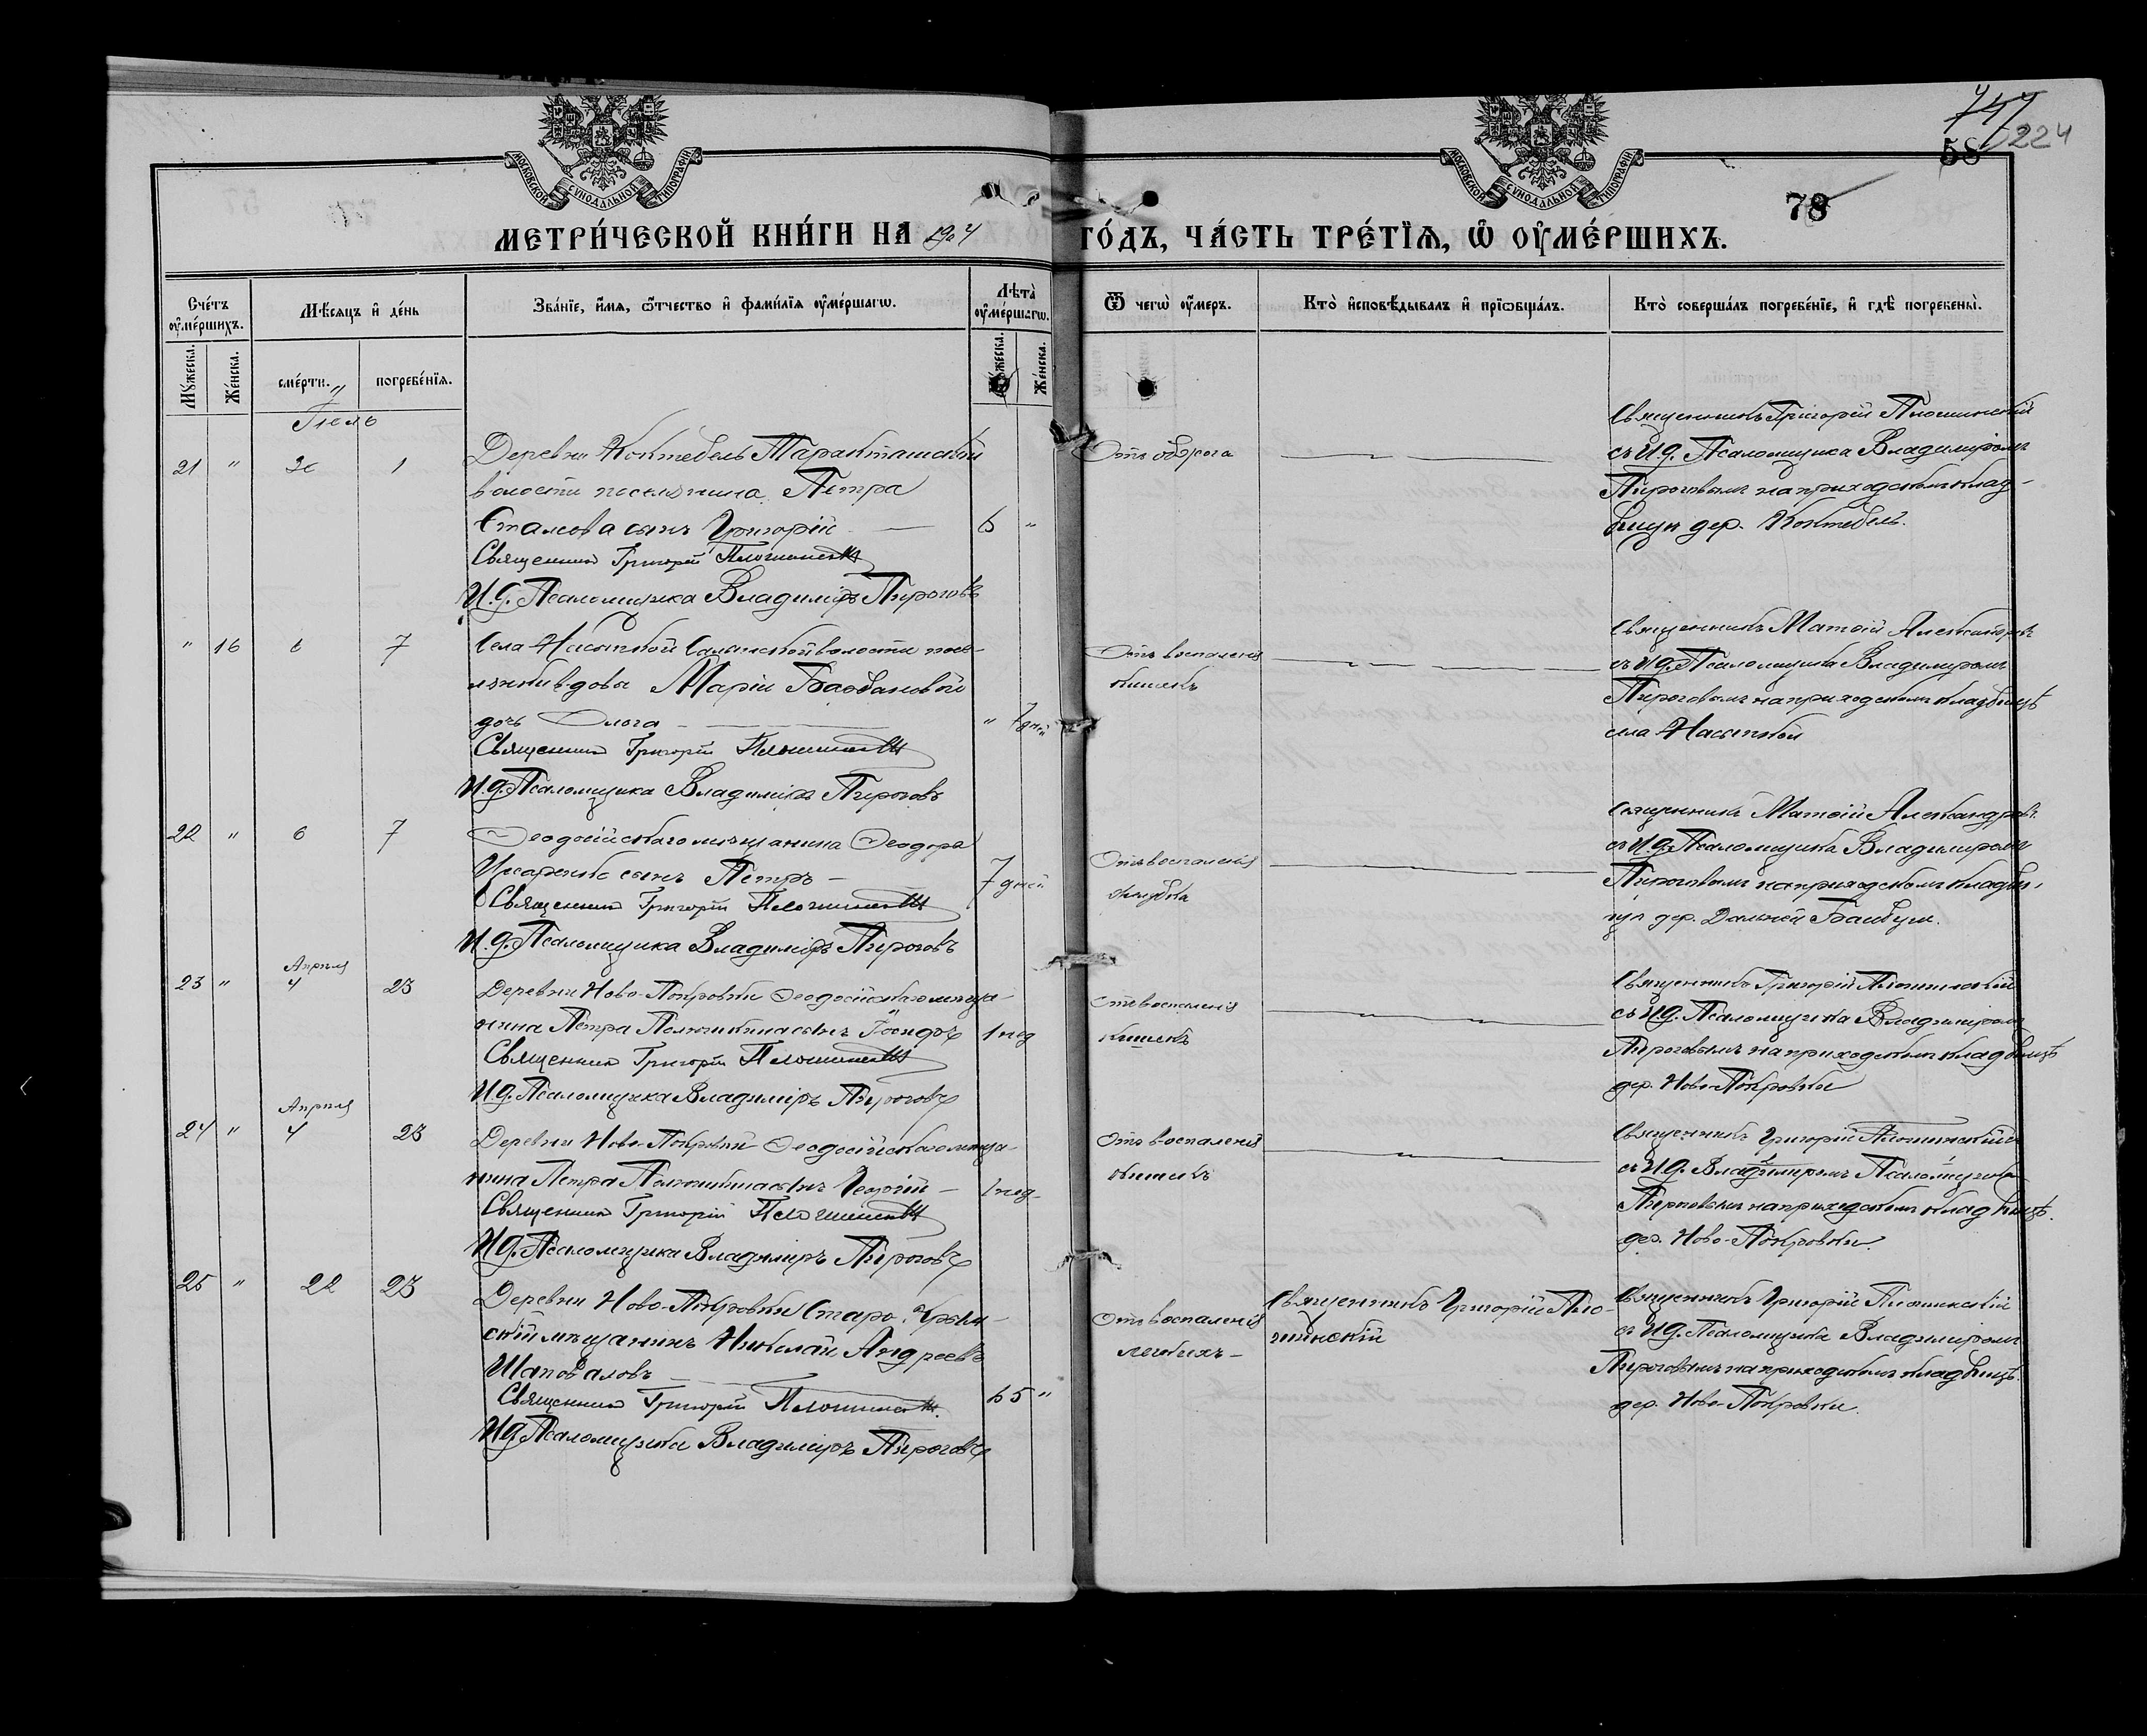 МОСКОВСКОЙ СѴНОДАЛЬНОЙ ТИПОГРАФІИ
МОСКОВСКОЙ СѴНОДАЛЬНОЙ ТИПОГРАФІИ
58
224
78
МЕТРИ́ЧЕСКОЙ КНИ́ГИ НА 1904 ГО́ДЪ, ЧА́СТЬ ТРЕ́ТЇѦ, Ѡ҆ ОУ҆МЕ́РШИХЪ.
Сче́тъ оу҆ме́ршихъ.
Мѣ́сѧцъ и҆ де́нь
Зва́нїе, и҆́мѧ, ѻ҆́тчество и҆ фами́лїѧ оу҆ме́ршагѡ.
Лѣ̑та оу҆ме́ршагѡ.
Ѿ чегѡ̀ оу҆́меръ.
Кто̀ и҆сповѣ́дывалъ и҆ прїѡбща́лъ.
Кто̀ соверша́лъ погребе́нїе, и҆ гдѣ̀ погребены̀.
Мꙋ́жеска.
Же́нска.
сме́рти.
погребе́нїѧ.
Мꙋ́жеска.
Же́нска.
Іюль
21 " 30 1
Деревни Коктебель Таракташской
волости поселянина Петра
сынъ Григорій — 6 "
Священникъ Григорій Плошинскій
И.д. Псаломщика Владиміръ Пироговъ
Отъ
Священникъ Григорій Плошинскій
съ И.д. Псаломщика Владиміромъ
Пироговымъ на приходскомъ клад-
бищѣ дер. Коктебель.
" 16 6 7
Села Насыпкой Салынской волости посе-
лянки вдовы Маріи
дочь Ольга — " 7 дней
Священникъ Григорій Плошинскій
И.д. Псаломщика Владиміръ Пироговъ
Отъ воспаленія
кишекъ
Священникъ Матѳій Александровъ
съ И.д. Псаломщика Владиміромъ
Пироговымъ на приходскомъ кладбищѣ
села Насыпкой
22 " 6 7
Ѳеодосійскаго мѣщанина Ѳеодора
сынъ Петръ — 7 дней
Священникъ Григорій Плошинскій
И.д. Псаломщика Владиміръ Пироговъ
Отъ воспаленія
желудка
Священникъ Матѳій Александровъ
съ И.д. Псаломщика Владиміромъ
Пироговымъ на приходскомъ кладби-
щѣ дер. Дальней Байбуги.
Апрѣля
23 " 4 23
Деревни Ново-Покровки Ѳеодосійскаго мѣща-
нина Петра сынъ 1 нед
Священникъ Григорій Плошинскій
И.д. Псаломщика Владиміръ Пироговъ
Отъ воспаленія
кишекъ
Священникъ Григорій Плошинскій
съ И.д. Псаломщика Владиміромъ
Пироговымъ на приходскомъ кладбищѣ
дер. Ново-Покровки
Апрѣля
24 " 4 23
Деревни Ново-Покровки Ѳеодосійскаго мѣща-
нина Петра сынъ Георгій — 1 нед
Священникъ Григорій Плошинскій
И.д. Псаломщика Владиміръ Пироговъ
Отъ воспаленія
кишекъ
Священникъ Григорій Плошинскій
съ И.д. Владиміромъ Псаломщика
Пироговымъ на приходскомъ кладбищѣ.
дер. Ново-Покровки.
25 " 22 23
Деревни Ново-Покровки Старо-Крым-
скій мѣщанинъ Николай Андреевъ
Шаповаловъ — 65 "
Священникъ Григорій Плошинскій
И.д. Псаломщика Владиміръ Пироговъ
Отъ воспаленія
легкихъ —
Священникъ Григорій Пло-
шинскій
Священникъ Григорій Плошинскій
съ И.д. Псаломщика Владиміромъ
Пироговымъ на приходскомъ кладбищѣ.
дер. Ново-Покровки.